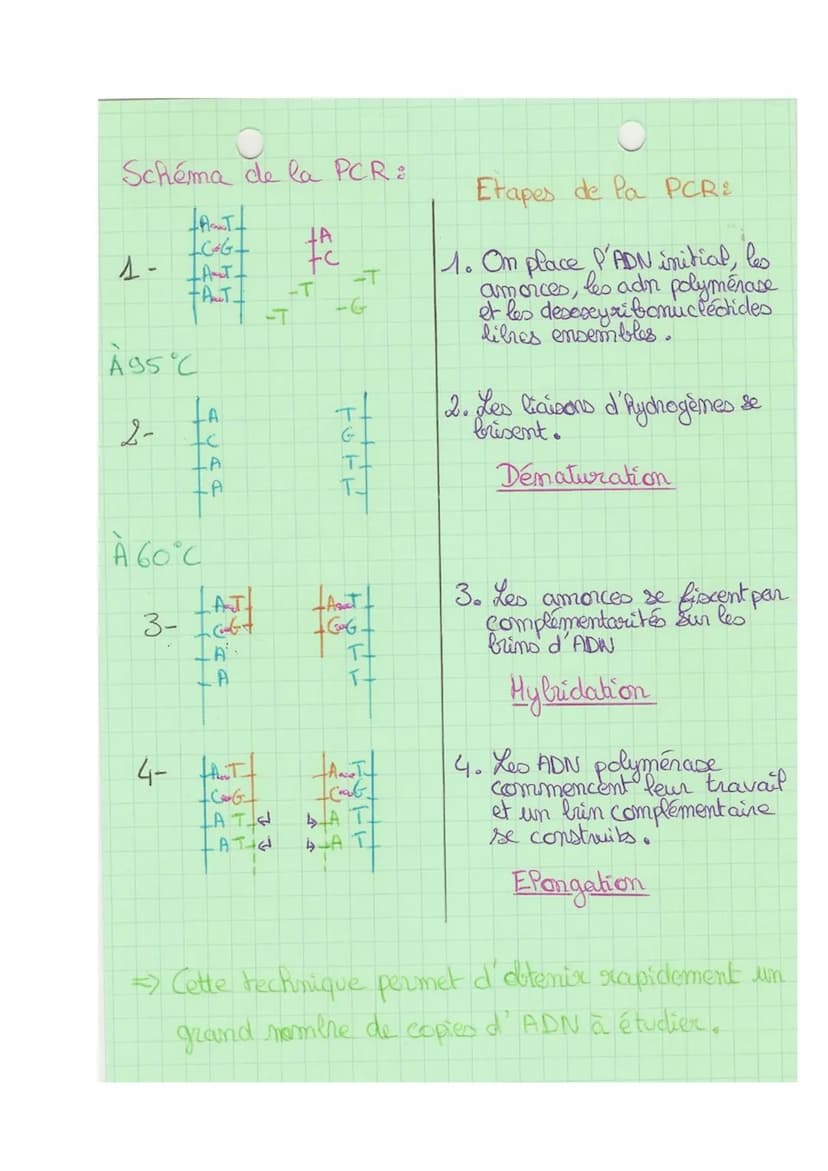 Schéma de la PCR :
Etapes de la PCR :
1-
A T
C G
A T
A T
A
C
-T
-T
-G
-T
1. On place l'ADN initial, les
amorces, les adn polymérase
et les desoxyribonucléotides
libres ensembles.
À 95°C
2-
A T
C G
A T
A T
2. Les liaisons d'hydrogènes se
brisent.
Dématuration
À 60°C
3-
A T A T
C G C G
A T
A T
3. Les amorces se fixent par
complémentarités sur les
brins d'ADN
Hybridation
4-
A T A T
C G C G
A T A T
A T A T
4. Les ADN polymérase
commencent leur travail
et un brin complémentaire
se construits.
Elongation
=> Cette technique permet d'obtenir rapidement un
grand nombre de copies d'ADN à étudier.